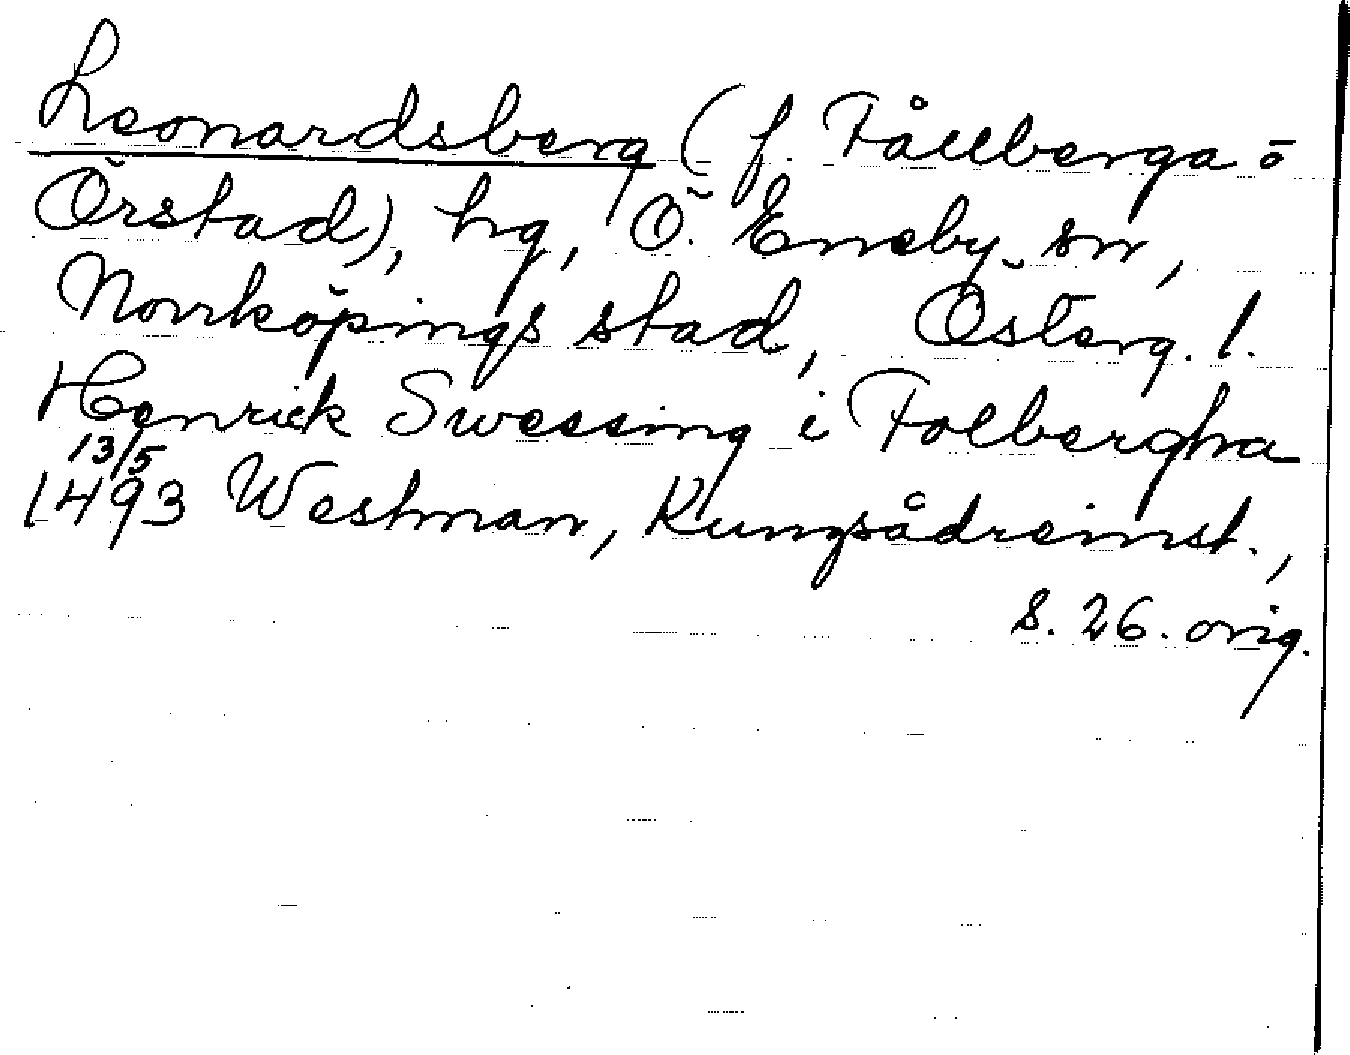 Leonardsberg (f. Fållberga o
Örstad), hg, Ö. Eneby sn,
Norrköpings stad, Österg. l.
Henrick Swessing i Folbergha
13/5
1493 Westman, Kungsådreinst.,
s. 26. orig.